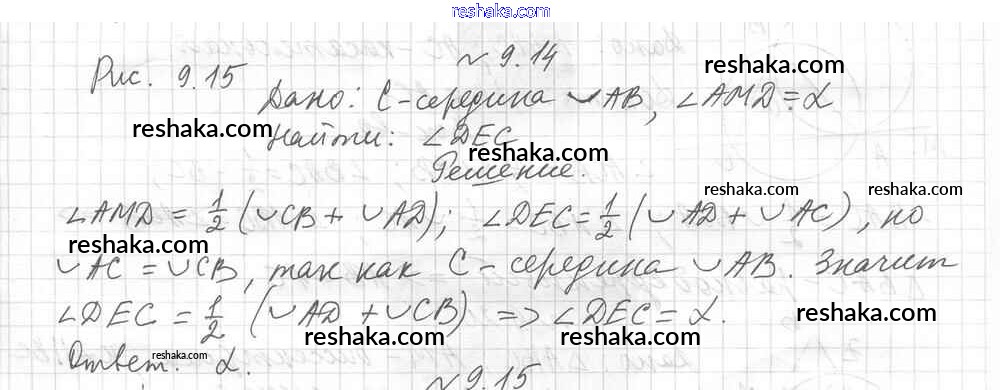 reshaka.com
№ 9.14
Рис. 9.15
reshaka.com
Дано: C - середина ◡ AB, ∠AMD = α
reshaka.com
Найти: ∠DEC
reshaka.com
Решение.
reshaka.com
reshaka.com
∠AMD = 1/2 (◡CB + ◡AD); ∠DEC = 1/2 (◡AD + ◡AC), но
reshaka.com
◡AC = ◡CB, так как C - середина ◡AB. Значит
reshaka.com
∠DEC = 1/2 (◡AD + ◡CB) => ∠DEC = α.
reshaka.com
reshaka.com
Ответ: α.
reshaka.com
№ 9.15
reshaka.com